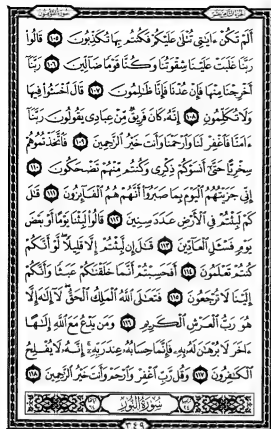 أَلَمْ تَكُنْ ءَايَٰتِى تُتْلَىٰ عَلَيْكُمْ فَكُنتُم بِهَا تُكَذِّبُونَ ١٠٥ قَالُوا۟
رَبَّنَا غَلَبَتْ عَلَيْنَا شِقْوَتُنَا وَكُنَّا قَوْمًا ضَآلِّينَ ١٠٦ رَبَّنَآ
أَخْرِجْنَا مِنْهَا فَإِنْ عُدْنَا فَإِنَّا ظَٰلِمُونَ ١٠٧ قَالَ ٱخْسَـُٔوا۟ فِيهَا
وَلَا تُكَلِّمُونِ ١٠٨ إِنَّهُۥ كَانَ فَرِيقٌ مِّنْ عِبَادِى يَقُولُونَ رَبَّنَآ
ءَامَنَّا فَٱغْفِرْ لَنَا وَٱرْحَمْنَا وَأَنتَ خَيْرُ ٱلرَّٰحِمِينَ ١٠٩ فَٱتَّخَذْتُمُوهُمْ
سِخْرِيًّا حَتَّىٰٓ أَنسَوْكُمْ ذِكْرِى وَكُنتُم مِّنْهُمْ تَضْحَكُونَ ١١٠
إِنِّى جَزَيْتُهُمُ ٱلْيَوْمَ بِمَا صَبَرُوٓا۟ أَنَّهُمْ هُمُ ٱلْفَآئِزُونَ ١١١ قَٰلَ
كَمْ لَبِثْتُمْ فِى ٱلْأَرْضِ عَدَدَ سِنِينَ ١١٢ قَالُوا۟ لَبِثْنَا يَوْمًا أَوْ بَعْضَ
يَوْمٍ فَسْـَٔلِ ٱلْعَآدِّينَ ١١٣ قَٰلَ إِن لَّبِثْتُمْ إِلَّا قَلِيلًا لَّوْ أَنَّكُمْ
كُنتُمْ تَعْلَمُونَ ١١٤ أَفَحَسِبْتُمْ أَنَّمَا خَلَقْنَٰكُمْ عَبَثًا وَأَنَّكُمْ
إِلَيْنَا لَا تُرْجَعُونَ ١١٥ فَتَعَٰلَى ٱللَّهُ ٱلْمَلِكُ ٱلْحَقُّ لَآ إِلَٰهَ إِلَّا
هُوَ رَبُّ ٱلْعَرْشِ ٱلْكَرِيمِ ١١٦ وَمَن يَدْعُ مَعَ ٱللَّهِ إِلَٰهًا
ءَاخَرَ لَا بُرْهَٰنَ لَهُۥ بِهِۦ فَإِنَّمَا حِسَابُهُۥ عِندَ رَبِّهِۦٓ إِنَّهُۥ لَا يُفْلِحُ
ٱلْكَٰفِرُونَ ١١٧ وَقُل رَّبِّ ٱغْفِرْ وَٱرْحَمْ وَأَنتَ خَيْرُ ٱلرَّٰحِمِينَ ١١٨
سُورَةُ النُّورِ
٣٤٩